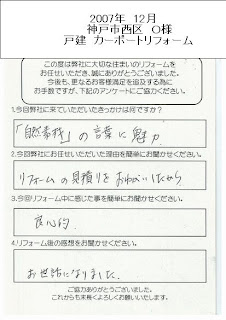 2007年　12月
神戸市西区　O様
戸建　カーポートリフォーム
この度は弊社に大切な住まいのリフォームを
お任せいただき、誠にありがとうございました。
今後も、更なるお客様満足を追求する為に
お手数ですが、下記のアンケートにご協力ください。
1.今回弊社に来ていただいたきっかけは何ですか？
「自然素材」の言葉に魅力
2.今回弊社にお任せいただいた理由を簡単にお聞かせください。
リフォームの見積りをおねがいしたから
3.今回リフォーム中に感じた事を簡単にお聞かせください。
良心的.
4.リフォーム後の感想をお聞かせください。
お世話になりました.
ご協力ありがとうございました。
これからも末長くよろしくお願いいたします。